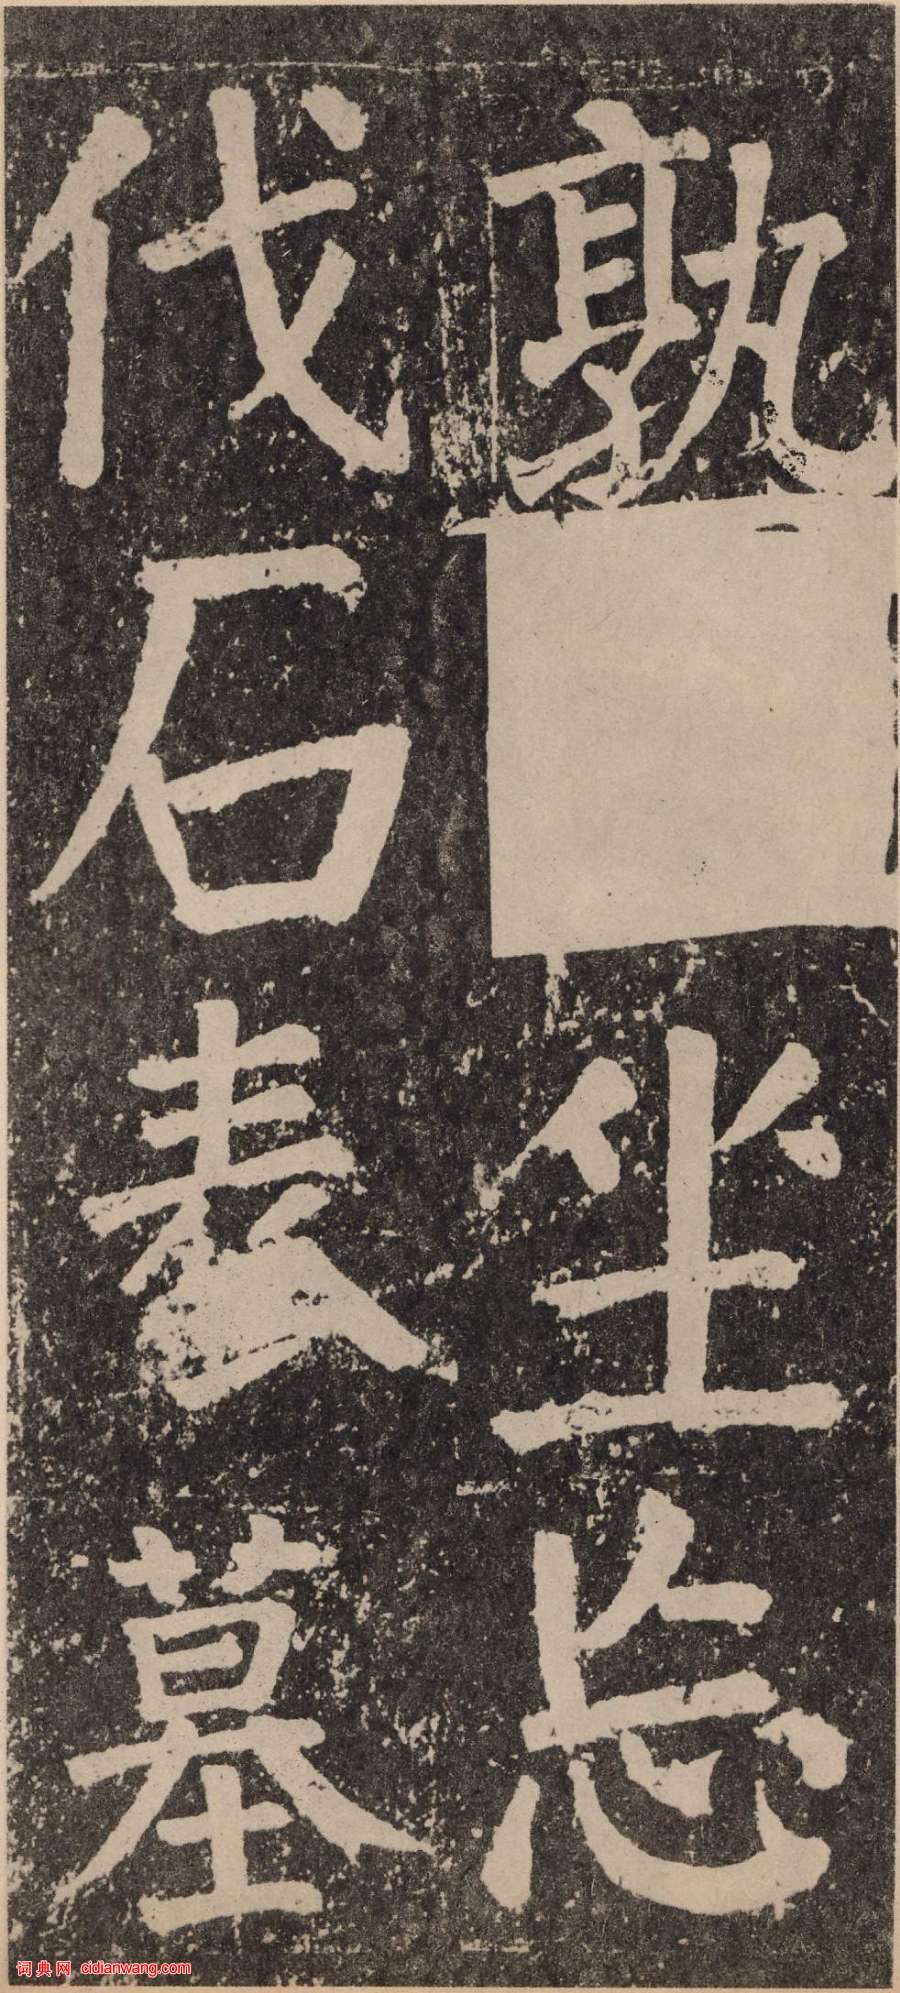 孰坐忘
伐石表墓
词典网 cidianwang.com